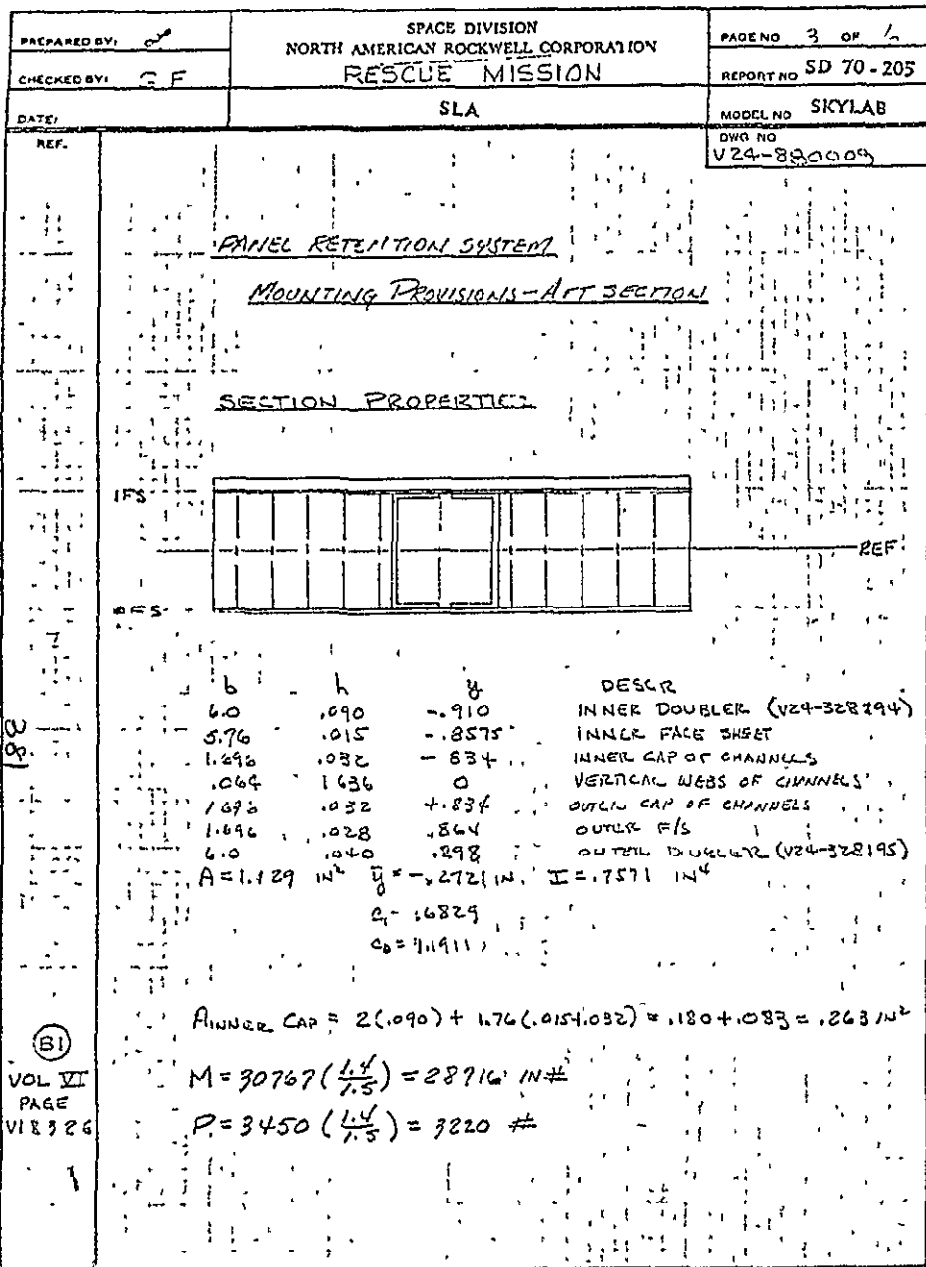 PREPARED BY:
SPACE DIVISION
NORTH AMERICAN ROCKWELL CORPORATION
RESCUE MISSION
PAGE NO 3 OF
CHECKED BY: F
REPORT NO SD 70-205
DATE:
SLA
MODEL NO SKYLAB
REF.
DWG NO
V24-880009
PANEL RETENTION SYSTEM
MOUNTING PROVISIONS-AFT SECTION
SECTION PROPERTIES
IFS
REF
FS
b h y DESCR
6.0 .090 -.910 INNER DOUBLER (V24-328294)
5.76 .015 -.8575 INNER FACE SHEET
1.696 .032 -834 INNER CAP OF CHANNELS
.064 1636 0 VERTICAL WEBS OF CHANNELS
1696 .032 +.834 OUTER CAP OF CHANNELS
1.696 .028 .864 OUTER F/S
6.0 .040 .898 OUTER DOUBLER (V24-328195)
A=1.129 IN² ȳ=-.2721 IN. I=.7571 IN⁴
.6829
1.1911
A INNER CAP = 2(.090) + 1.76(.015+.032) = .180+.083 = .263 IN²
M=30767(1.4/1.5) = 28716 IN#
P=3450(1.4/1.5) = 3220 #
381
B1
VOL VI
PAGE
V18326